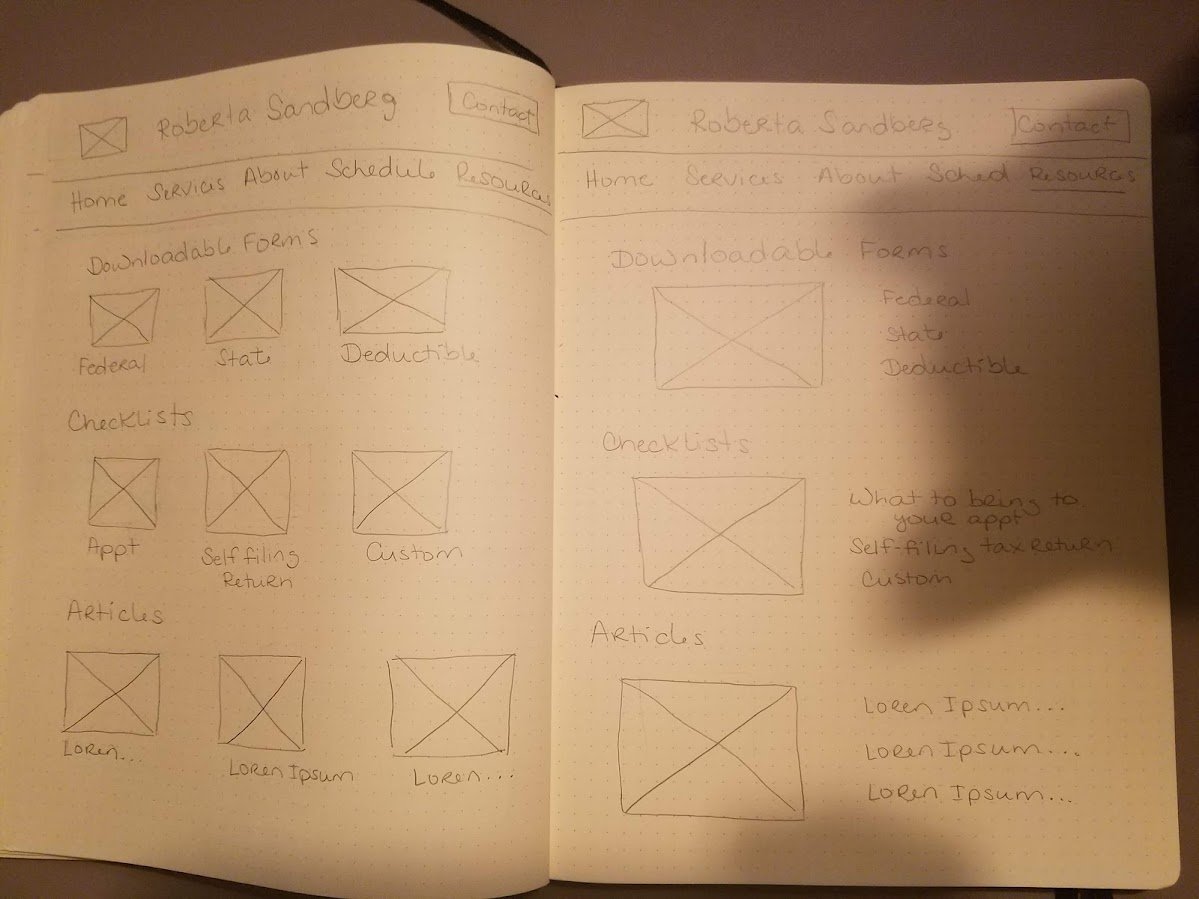 Roberta Sandberg
Contact
Home Services About Schedule Resources
Downloadable Forms
Federal State Deductible
Checklists
Appt Self filing Custom
Return
Articles
Loren... Loren Ipsum Loren...
Roberta Sandberg
Contact
Home Services About Sched Resources
Downloadable Forms
Federal
State
Deductible
Checklists
What to being to
your appt
Self-filing tax return
Custom
Articles
Loren Ipsum...
Loren Ipsum...
Loren Ipsum...